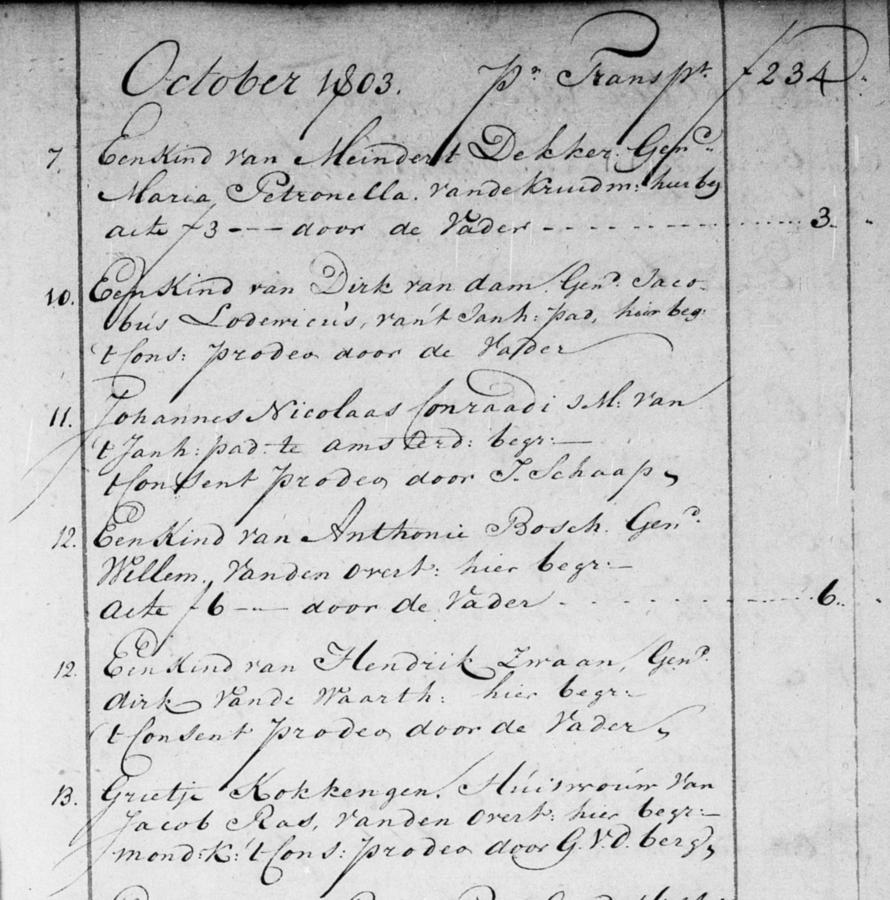 October 1803. Pr Transpt. f 234
7. Een Kind van Meindert Dekker. Gend.
Maria, Petronella. van de Kruidm: hier beg
acte f 3 --- door de Vader ---------- 3.
10. Een Kind van Dirk van dam, Gend. Jaco-
bus Lodewicus, van 't Janh: pad, hier beg:
't Cons: prodeo door de Vader
11. Johannes Nicolaas Conraadi JM: van
't Janh: pad: te amsterd: begr:—
't Consent prodeo door J. Schaap,
12. Een Kind van Anthonie Bosch. Gend.
Willem, van den overt: hier begr:—
acte f 6 --- door de Vader ---------- 6.
12. Een Kind van Hendrik Zwaan, Gend.
dirk van de Waarth: hier begr:—
't Consent prodeo door de Vader,
13. Grietje Kokkengen. Huisvrouw van
Jacob Ras, van den overt: hier begr:—
mond: K: 't Cons: prodeo door G. V. D. berg,